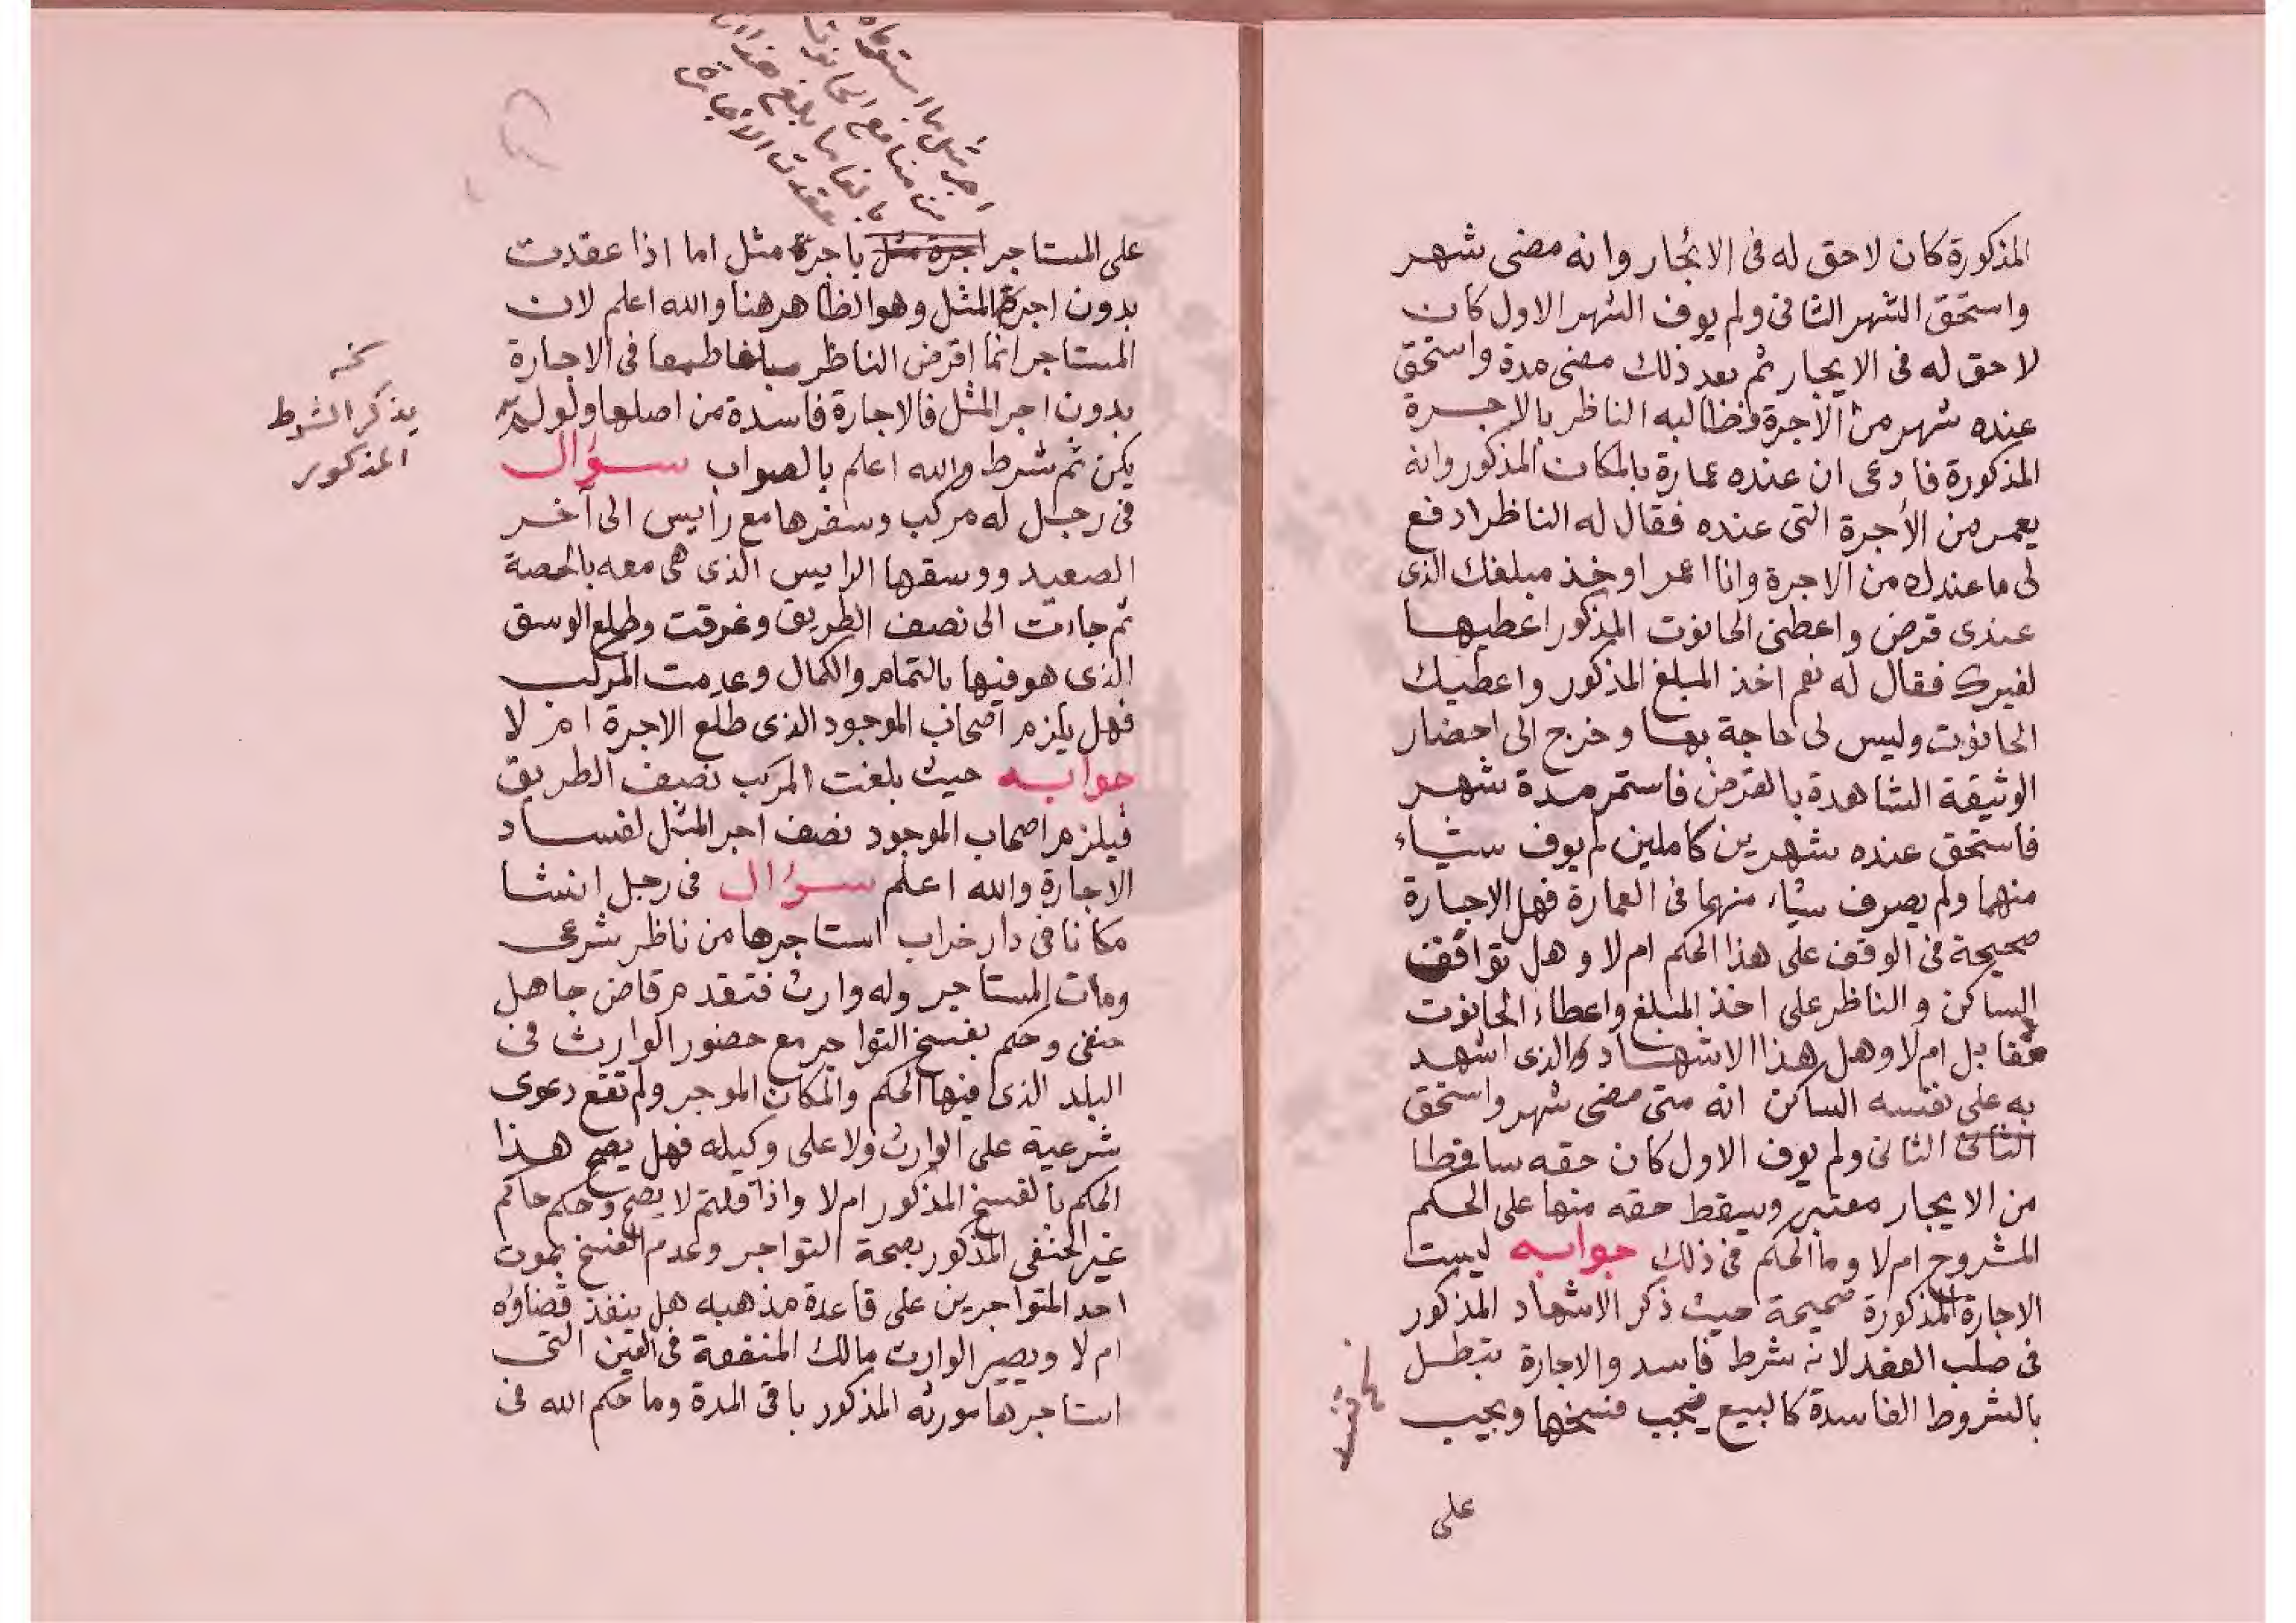 المذكورة كان لاحق له فى الايجار وانه مضى شهر
واستحق الشهر الثانى ولم يوف الشهر الاول كان
لاحق له فى الايجار ثم بعد ذلك مضى مدة واستحق
عنده شهر من الأجرة فطالبه الناظر بالاجرة
المذكورة فادعى ان عنده عمارة بالمكان المذكور وانه
يعمر من الأجرة التى عنده فقال له الناظر ادفع
لى ما عندك من الاجرة وانا اعمر او خذ مبلغك الذى
عندى قرض واعطنى الحانوت المذكور اعطيها
لغيرك فقال له نعم اخذ المبلغ المذكور واعطيك
الحانوت وليس لى حاجة بها وخرج الى احضار
الوثيقة الشاهدة بالقرض فاستمر مدة شهر
فاستحق عنده شهرين كاملين لم يوف شياء
منهما ولم يصرف شياء منهما فى العمارة فهل الاجارة
صحيحة فى الوقف على هذا الحكم ام لا وهل توافق
الساكن والناظر على اخذ المبلغ واعطاء الحانوت
مقابل ام لا وهل هذا الاشهاد والذى اشهد
به على نفسه الساكن انه متى مضى شهر واستحق
الثانى الثانى ولم يوف الاول كان حقه ساقطا
من الايجار معتبر ويسقط حقه منها على الحكم
المشروح ام لا وما الحكم فى ذلك جوابه ليست
الاجارة المذكورة صحيحة حيث ذكر الاشهاد المذكور
فى صلب العقد لانه شرط فاسد والاجارة تبطل
بالشروط الفاسدة كالبيع فيجب فسخها ويجب
على
اجر مثل ما استوفاه
من منافع الحانوت
بالغا ما بلغ هذا ان
عقدت الاجارة
على المستاجر اجرة مثل باجرة مثل اما اذا عقدت
بدون اجرة المثل وهو الظاهر هنا والله اعلم لان
المستاجر انما اقرض الناظر مبلغا طمعا فى الاجارة
بدون اجر المثل فالاجارة فاسدة من اصلها ولو لم
يكن ثم شرط والله اعلم بالصواب سؤال
فى رجل له مركب وسفرها مع رايس الى آخر
الصعيد ووسقها الرايس الذى هى معه بالحصة
ثم جاءت الى نصف الطريق وغرقت وطلع الوسق
الذى هو فيها بالتمام والكمال وعدمت المركب
فهل يلزم اصحاب الموجود الذى طلع الاجرة ام لا
جوابه حيث بلغت المركب نصف الطريق
فيلزم اصحاب الموجود نصف اجر المثل لفساد
الاجارة والله اعلم سؤال فى رجل انشا
مكانا فى دار خراب استاجرها من ناظر شرعى
ومات المستاجر وله وارث فتقدم قاض جاهل
حنفى وحكم بفسخ التواجر مع حضور الوارث فى
البلد الذى فيها الحكم والمكان الموجر ولم تقع دعوى
شرعية على الوارث ولا على وكيله فهل يصح هذا
الحكم بالفسخ المذكور ام لا واذا قلتم لا يصح وحكم حاكم
غير الحنفى المذكور بصحة التواجر وعدم الفسخ بموت
احد المتواجرين على قاعدة مذهبه هل ينفذ قضاؤه
ام لا ويصير الوارث مالك المنفعة فى العين التى
استاجرها مورثه المذكور باقى المدة وما حكم الله فى
نخه
يذكر الشرط
المذكور